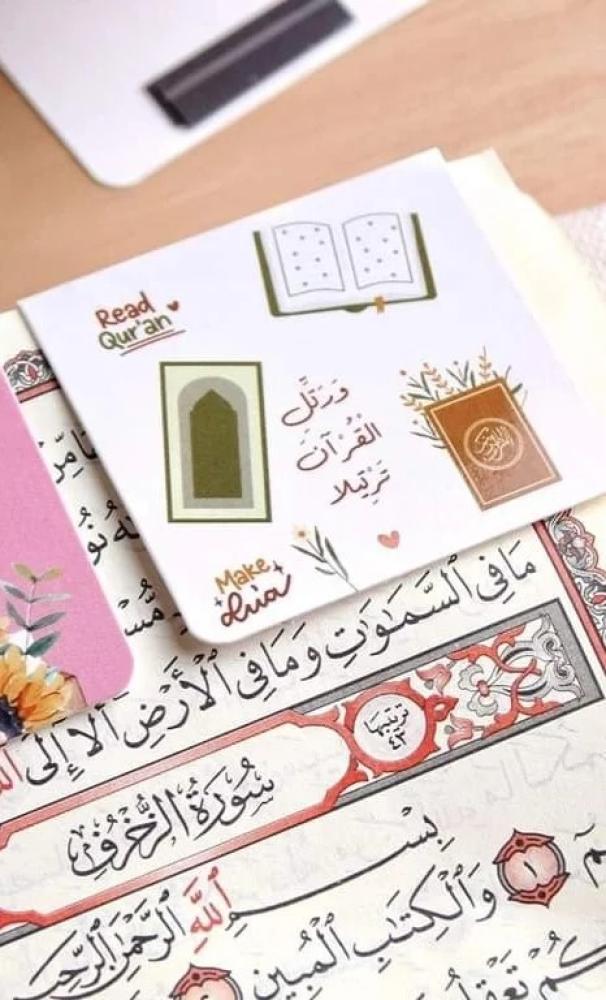 Read
Qur'an
وَرَتِّلِ
الْقُرْآنَ
تَرْتِيلًا
القرآن الكريم
Make
dua
مَا فِي ٱلسَّمَٰوَٰتِ وَمَا فِي ٱلْأَرْضِ أَلَآ إِلَى
ترتيبها
٤٣
سُورَةُ الزُّخْرُفِ
بِسْمِ ٱللَّهِ ٱلرَّحْمَٰنِ ٱلرَّحِيمِ
١ وَٱلْكِتَٰبِ ٱلْمُبِينِ